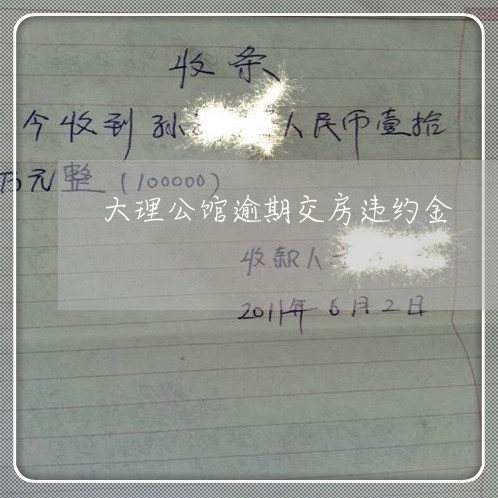 收条
今收到孙 人民币壹拾
万元整（100000）
大理公馆逾期交房违约金
收款人
2011年6月2日